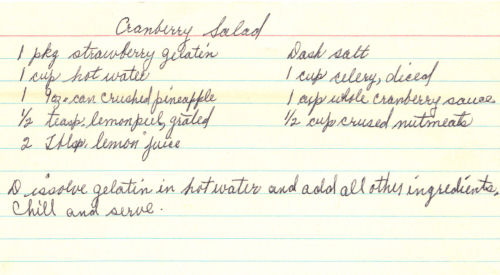 Cranberry Salad
1 pkg strawberry gelatin
1 cup hot water
1 9oz can crushed pineapple
1/2 teasp. lemon peel, grated
2 Tblsp. lemon juice
Dash salt
1 cup celery, diced
1 cup whole cranberry sauce
1/2 cup crused nutmeats
Dissolve gelatin in hot water and add all other ingredients.
Chill and serve.